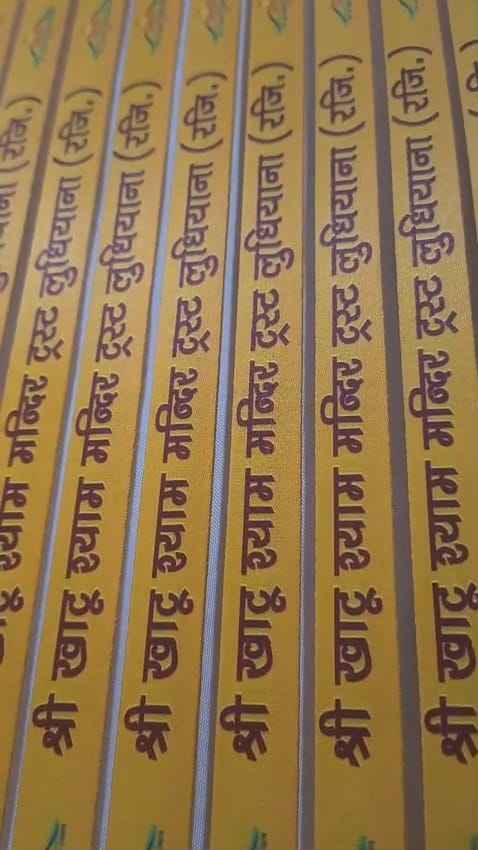 श्री खाटू श्याम मन्दिर ट्रस्ट लुधियाना (रजि.)
श्री खाटू श्याम मन्दिर ट्रस्ट लुधियाना (रजि.)
श्री खाटू श्याम मन्दिर ट्रस्ट लुधियाना (रजि.)
श्री खाटू श्याम मन्दिर ट्रस्ट लुधियाना (रजि.)
श्री खाटू श्याम मन्दिर ट्रस्ट लुधियाना (रजि.)